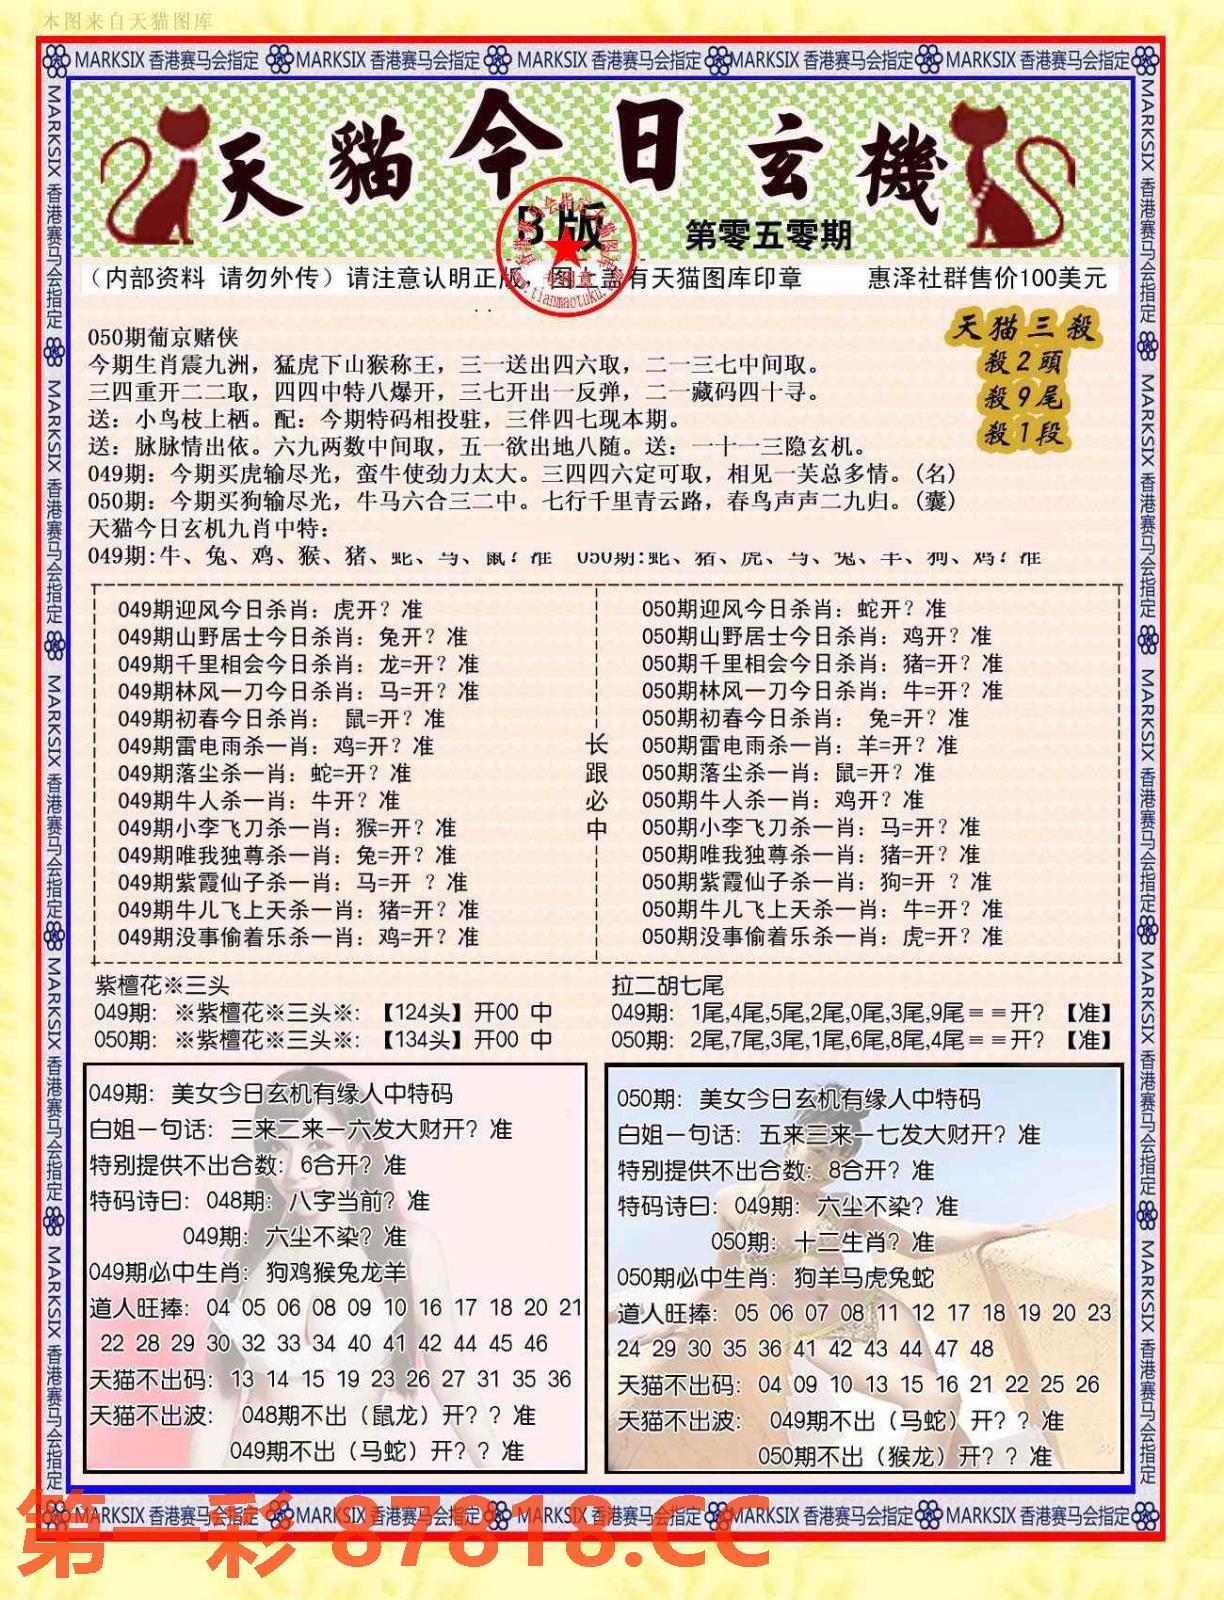 本图来自天猫图库
MARKSIX 香港赛马会指定 MARKSIX 香港赛马会指定 MARKSIX 香港赛马会指定 MARKSIX 香港赛马会指定 MARKSIX 香港赛马会指定
MARKSIX 香港赛马会指定 MARKSIX 香港赛马会指定 MARKSIX 香港赛马会指定 MARKSIX 香港赛马会指定 MARKSIX 香港赛马会指定
天貓今日玄機
B版
第零五零期
（内部资料 请勿外传）请注意认明正版 图上盖有天猫图库印章 惠泽社群售价100美元
天猫三殺
殺2頭
殺9尾
殺1段
050期葡京赌侠
今期生肖震九洲，猛虎下山猴称王，三一送出四六取，二一三七中间取。
三四重开二二取，四四中特八爆开，三七开出一反弹，二一藏码四十寻。
送：小鸟枝上栖。配：今期特码相投驻，三伴四七现本期。
送：脉脉情出依。六九两数中间取，五一欲出地八随。送：一十一三隐玄机。
049期：今期买虎输尽光，蛮牛使劲力太大。三四四六定可取，相见一芙总多情。(名)
050期：今期买狗输尽光，牛马六合三二中。七行千里青云路，春鸟声声二九归。(囊)
天猫今日玄机九肖中特：
049期:牛、兔、鸡、猴、猪、蛇、马、鼠？准 050期:蛇、猪、虎、马、兔、羊、狗、鸡？准
049期迎风今日杀肖：虎开？准
049期山野居士今日杀肖：兔开？准
049期千里相会今日杀肖：龙=开？准
049期林风一刀今日杀肖：马=开？准
049期初春今日杀肖： 鼠=开？准
049期雷电雨杀一肖：鸡=开？准
049期落尘杀一肖：蛇=开？准
049期牛人杀一肖：牛开？准
049期小李飞刀杀一肖：猴=开？准
049期唯我独尊杀一肖：兔=开？准
049期紫霞仙子杀一肖：马=开 ？准
049期牛儿飞上天杀一肖：猪=开？准
049期没事偷着乐杀一肖：鸡=开？准
长跟必中
050期迎风今日杀肖：蛇开？准
050期山野居士今日杀肖：鸡开？准
050期千里相会今日杀肖：猪=开？准
050期林风一刀今日杀肖：牛=开？准
050期初春今日杀肖： 兔=开？准
050期雷电雨杀一肖：羊=开？准
050期落尘杀一肖：鼠=开？准
050期牛人杀一肖：鸡开？准
050期小李飞刀杀一肖：马=开？准
050期唯我独尊杀一肖：猪=开？准
050期紫霞仙子杀一肖：狗=开 ？准
050期牛儿飞上天杀一肖：牛=开？准
050期没事偷着乐杀一肖：虎=开？准
紫檀花※三头
049期：※紫檀花※三头※：【124头】开00 中
050期：※紫檀花※三头※：【134头】开00 中
拉二胡七尾
049期：1尾,4尾,5尾,2尾,0尾,3尾,9尾＝＝开？【准】
050期：2尾,7尾,3尾,1尾,6尾,8尾,4尾＝＝开？【准】
049期：美女今日玄机有缘人中特码
白姐一句话：三来二来一六发大财开？准
特别提供不出合数：6合开？准
特码诗曰：048期：八字当前？准
049期：六尘不染？准
049期必中生肖：狗鸡猴兔龙羊
道人旺捧：04 05 06 08 09 10 16 17 18 20 21
22 28 29 30 32 33 34 40 41 42 44 45 46
天猫不出码：13 14 15 19 23 26 27 31 35 36
天猫不出波： 048期不出（鼠龙）开？？准
049期不出（马蛇）开？？准
050期：美女今日玄机有缘人中特码
白姐一句话：五来三来一七发大财开？准
特别提供不出合数：8合开？准
特码诗曰：049期：六尘不染？准
050期：十二生肖？准
050期必中生肖：狗羊马虎兔蛇
道人旺捧：05 06 07 08 11 12 17 18 19 20 23
24 29 30 35 36 41 42 43 44 47 48
天猫不出码：04 09 10 13 15 16 21 22 25 26
天猫不出波： 049期不出（马蛇）开？？准
050期不出（猴龙）开？？准
MARKSIX 香港赛马会指定 MARKSIX 香港赛马会指定 MARKSIX 香港赛马会指定 MARKSIX 香港赛马会指定 MARKSIX 香港赛马会指定
MARKSIX 香港赛马会指定 MARKSIX 香港赛马会指定 MARKSIX 香港赛马会指定 MARKSIX 香港赛马会指定 MARKSIX 香港赛马会指定
第一彩 87818.CC